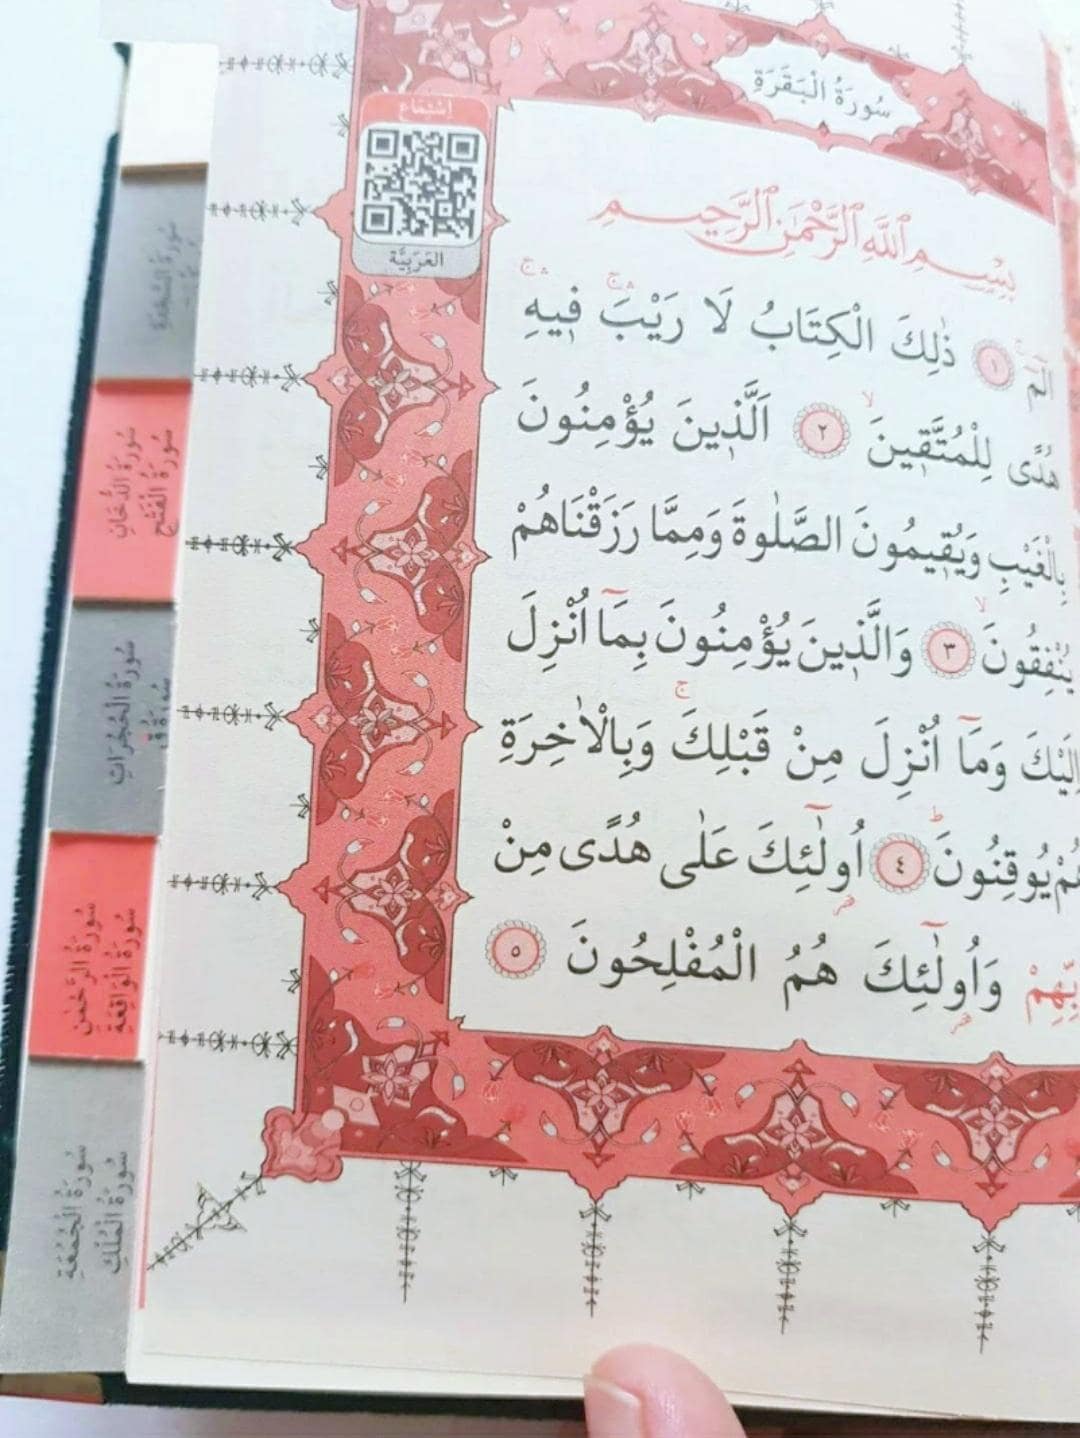 سُورَةُ الْبَقَرَةِ
إِسْتِمَاع
العَرَبِيَّة
بِسْمِ اللّٰهِ الرَّحْمٰنِ الرَّحِيمِ
الٓمٓ ١ ذٰلِكَ الْكِتَابُ لَا رَيْبَ فٖيهِ
هُدًى لِلْمُتَّقٖينَ ٢ اَلَّذٖينَ يُؤْمِنُونَ
بِالْغَيْبِ وَيُقٖيمُونَ الصَّلٰوةَ وَمِمَّا رَزَقْنَاهُمْ
يُنْفِقُونَ ٣ وَالَّذٖينَ يُؤْمِنُونَ بِمَٓا اُنْزِلَ
اِلَيْكَ وَمَٓا اُنْزِلَ مِنْ قَبْلِكَ وَبِالْاٰخِرَةِ
هُمْ يُوقِنُونَ ٤ اُولٰٓئِكَ عَلٰى هُدًى مِنْ
وَاُولٰٓئِكَ هُمُ الْمُفْلِحُونَ ٥
سُورَةُ السَّجْدَةِ
سُورَةُ الدُّخَانِ
سُورَةُ الْفَتْحِ
سُورَةُ الْحُجُرَاتِ
سُورَةُ قٓ
سُورَةُ الرَّحْمٰنِ
سُورَةُ الْوَاقِعَةِ
سُورَةُ الْجُمُعَةِ
سُورَةُ الْمُلْكِ